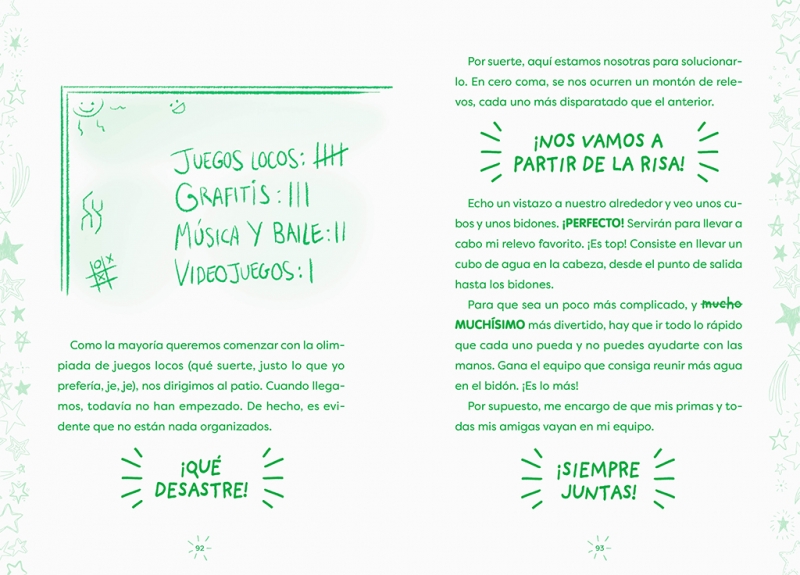 JUEGOS LOCOS: IIII
GRAFITIS: III
MÚSICA Y BAILE: II
VIDEOJUEGOS: I
Como la mayoría queremos comenzar con la olim-
piada de juegos locos (qué suerte, justo lo que yo
prefería, je, je), nos dirigimos al patio. Cuando llega-
mos, todavía no han empezado. De hecho, es evi-
dente que no están nada organizados.
¡QUÉ
DESASTRE!
92
Por suerte, aquí estamos nosotras para solucionar-
lo. En cero coma, se nos ocurren un montón de rele-
vos, cada uno más disparatado que el anterior.
¡NOS VAMOS A
PARTIR DE LA RISA!
Echo un vistazo a nuestro alrededor y veo unos cu-
bos y unos bidones. ¡PERFECTO! Servirán para llevar a
cabo mi relevo favorito. ¡Es top! Consiste en llevar un
cubo de agua en la cabeza, desde el punto de salida
hasta los bidones.
Para que sea un poco más complicado, y mucho
MUCHÍSIMO más divertido, hay que ir todo lo rápido
que cada uno pueda y no puedes ayudarte con las
manos. Gana el equipo que consiga reunir más agua
en el bidón. ¡Es lo más!
Por supuesto, me encargo de que mis primas y to-
das mis amigas vayan en mi equipo.
¡SIEMPRE
JUNTAS!
93